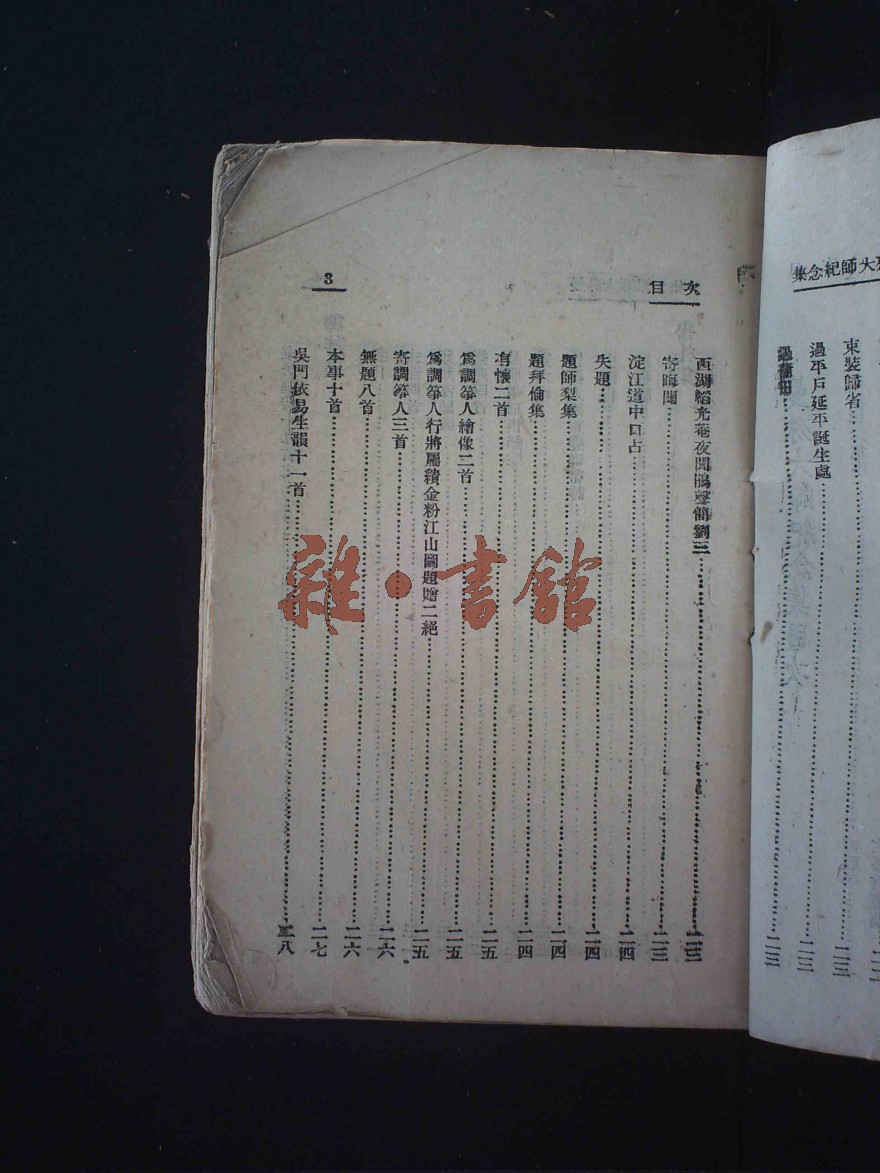 大師紀念集
束裝歸省……二三
過平戶延平誕生處……二三
過蒲田……二三
目次
西湖韜光菴夜聞鵑聲簡劉三……二三
寄晦聞……二三
淀江道中口占……二四
失題……二四
題師梨集……二四
題拜倫集……二四
有懷二首……二五
爲調箏人繪像二首……二五
爲調箏人行將屬繢金粉江山圖題贈二絕……二五
寄調箏人三首……二六
無題八首……二六
本事十首……二七
吳門依易生韻十一首……二八
3
雜·書館